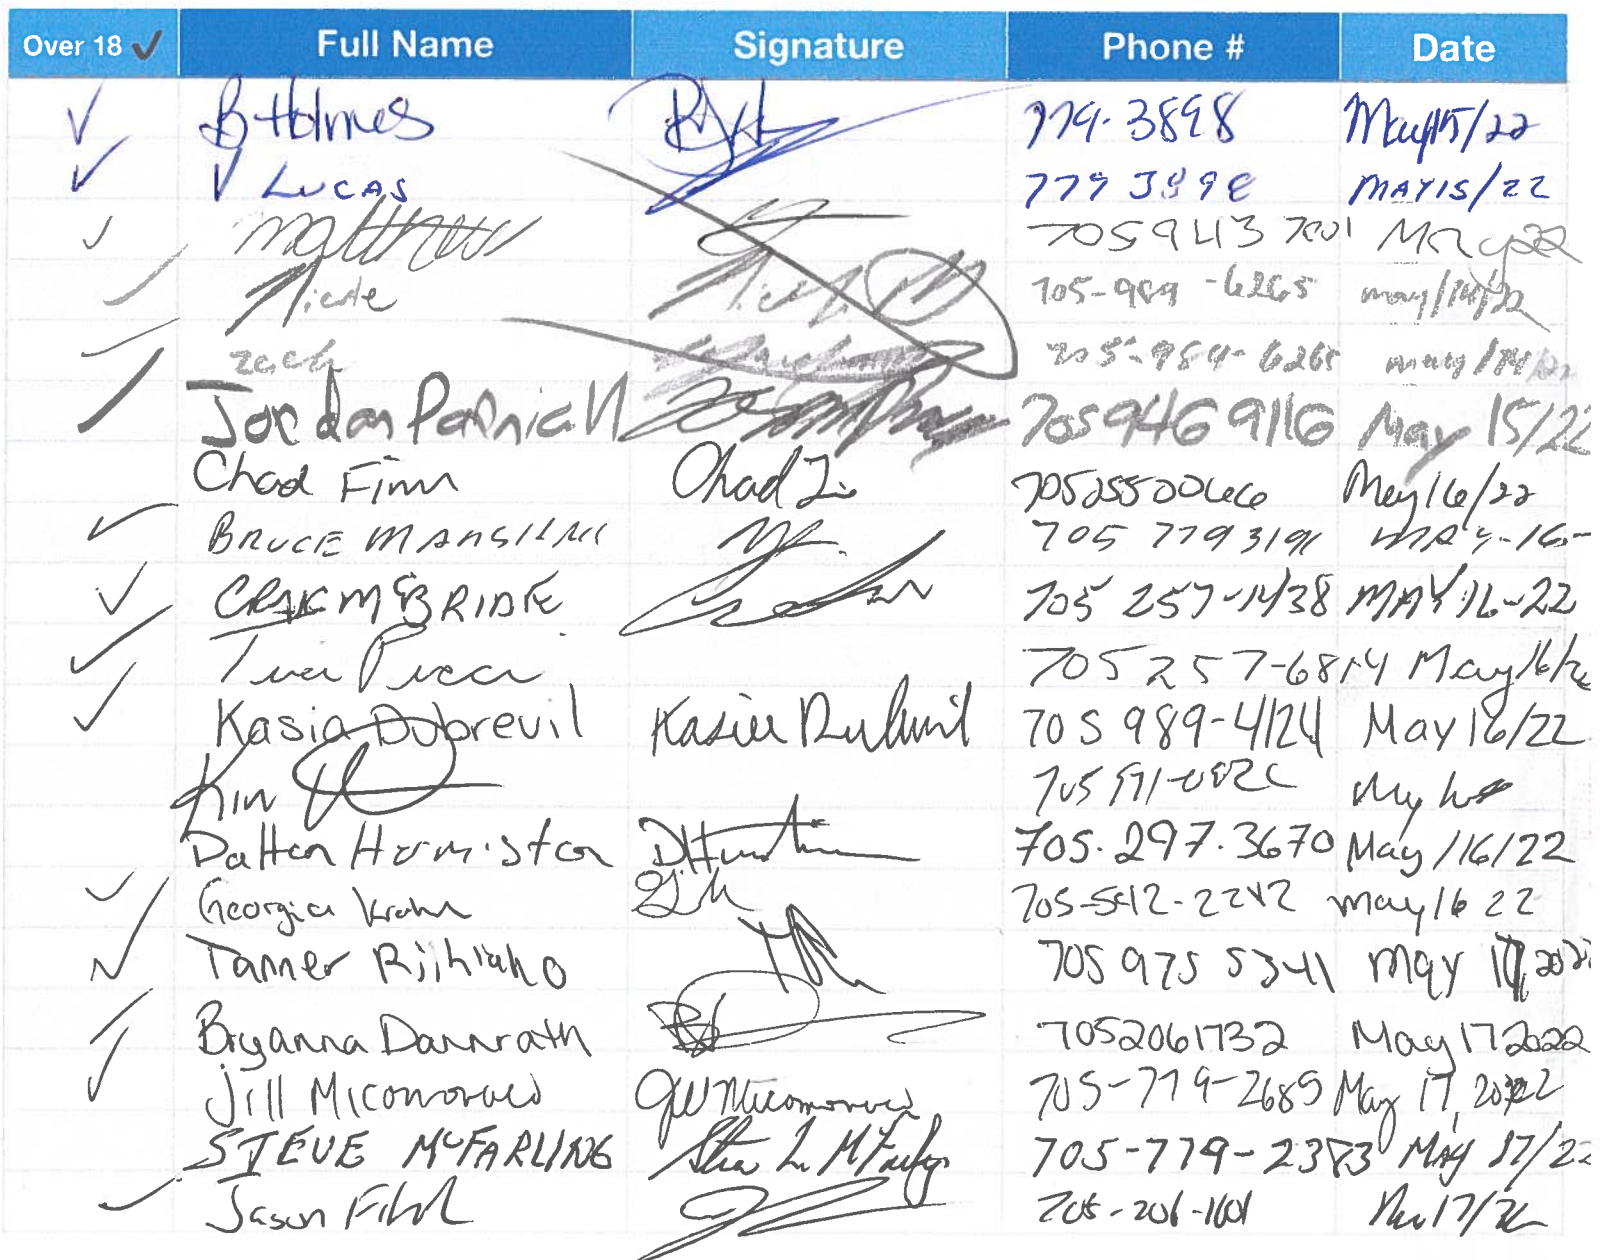 Over 18 ✓ Full Name Signature Phone # Date
✓ B Holmes 779-3898 May 15/22
✓ V LUCAS 779 3898 MAY 15/22
✓ matthew 705 943 7001 May 22
✓ Nicole 705-989-6265 may/14/22
✓ zach 705-989-6265 may/14/22
✓ Jordan 705 946 9116 May 15/22
Chad Finn Chad 705 255 0066 May 16/22
✓ BRUCE 705 779 3191 MAY-16-
✓ CRAIG McBRIDE 705 257-1438 MAY 16-22
✓ Tina Pucci 705 257-6814 May 16/22
✓ Kasia Dubreuil Kasia Dubreuil 705 989-4124 May 16/22
Kim 705
Dalton Hormiston 705-297-3670 May/16/22
✓ Georgia Krahn 705-542-2242 may 16 22
✓ Tanner Riihiaho 705 975 5341 May 17, 2022
✓ Bryanna Dannrath 705 206 1732 May 17 2022
✓ Jill Miconorved 705-779-2685 May 17, 2022
STEVE McFARLING 705-779-2383 MAY 17/22
✓ Jason 705-206-1601 17/22